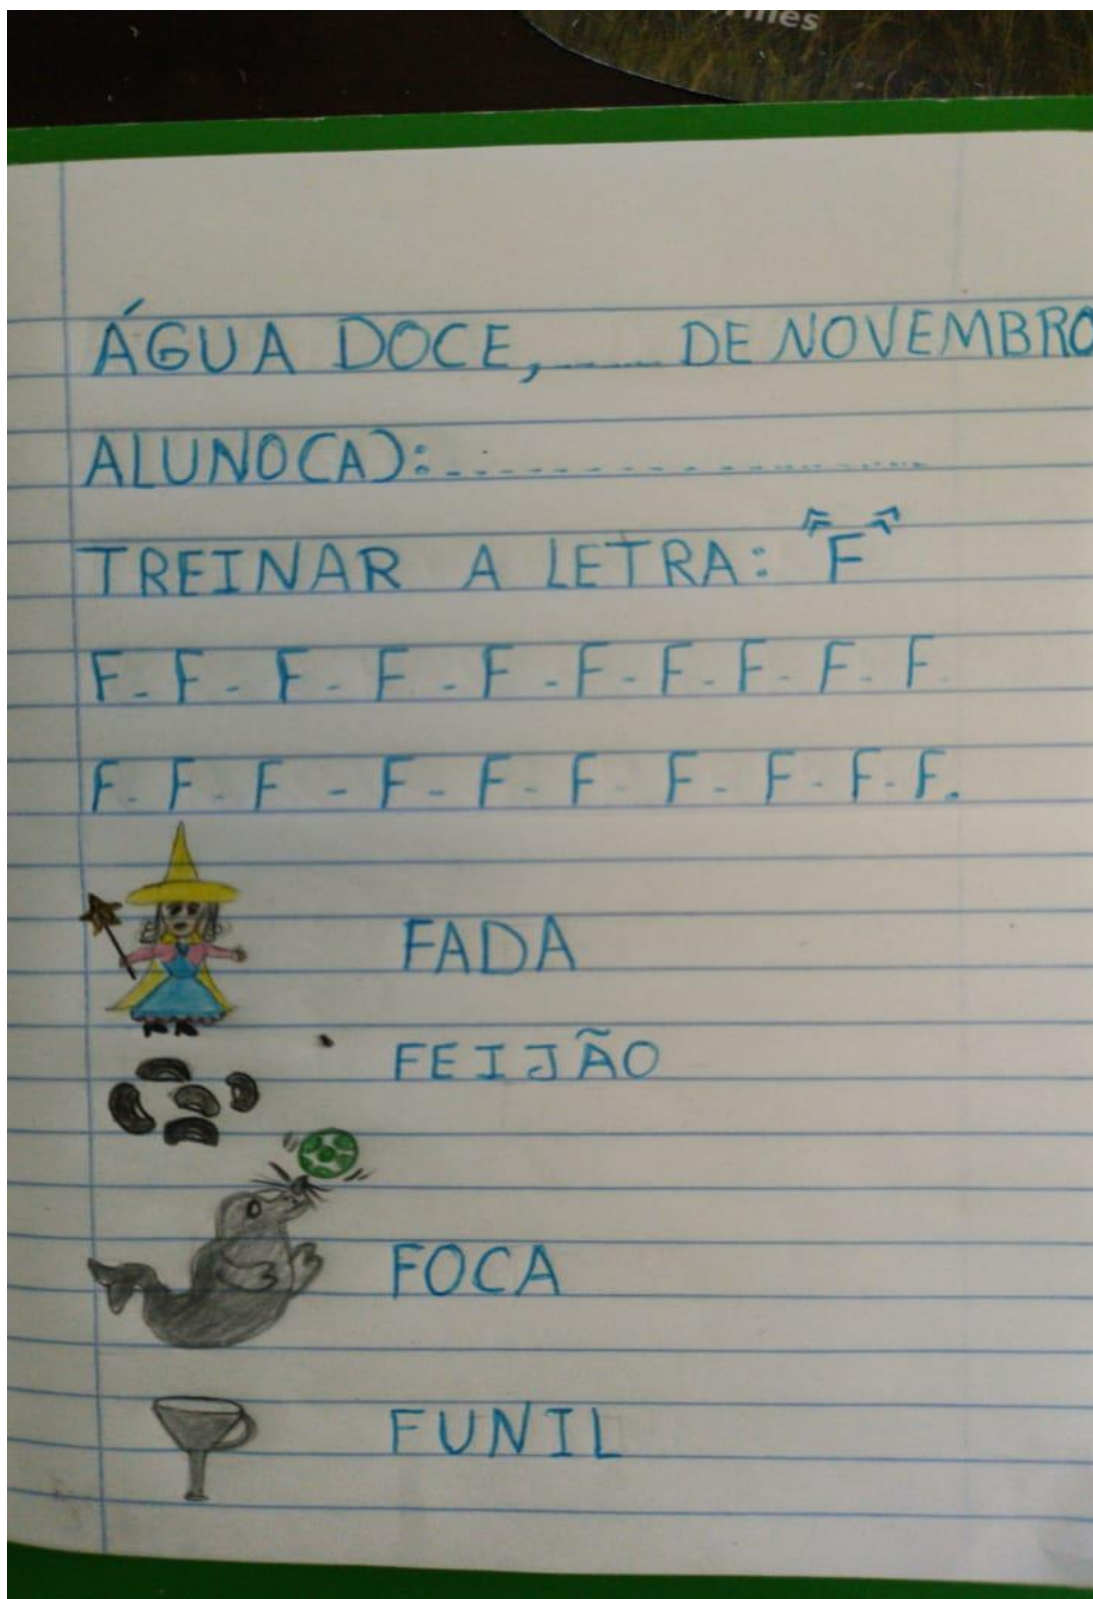 ÁGUA DOCE, ........ DE NOVEMBRO
ALUNO(A):..............................
TREINAR A LETRA: "F"
F - F - F - F - F - F - F - F - F - F
F - F - F - F - F - F - F - F - F - F.
FADA
FEIJÃO
FOCA
FUNIL